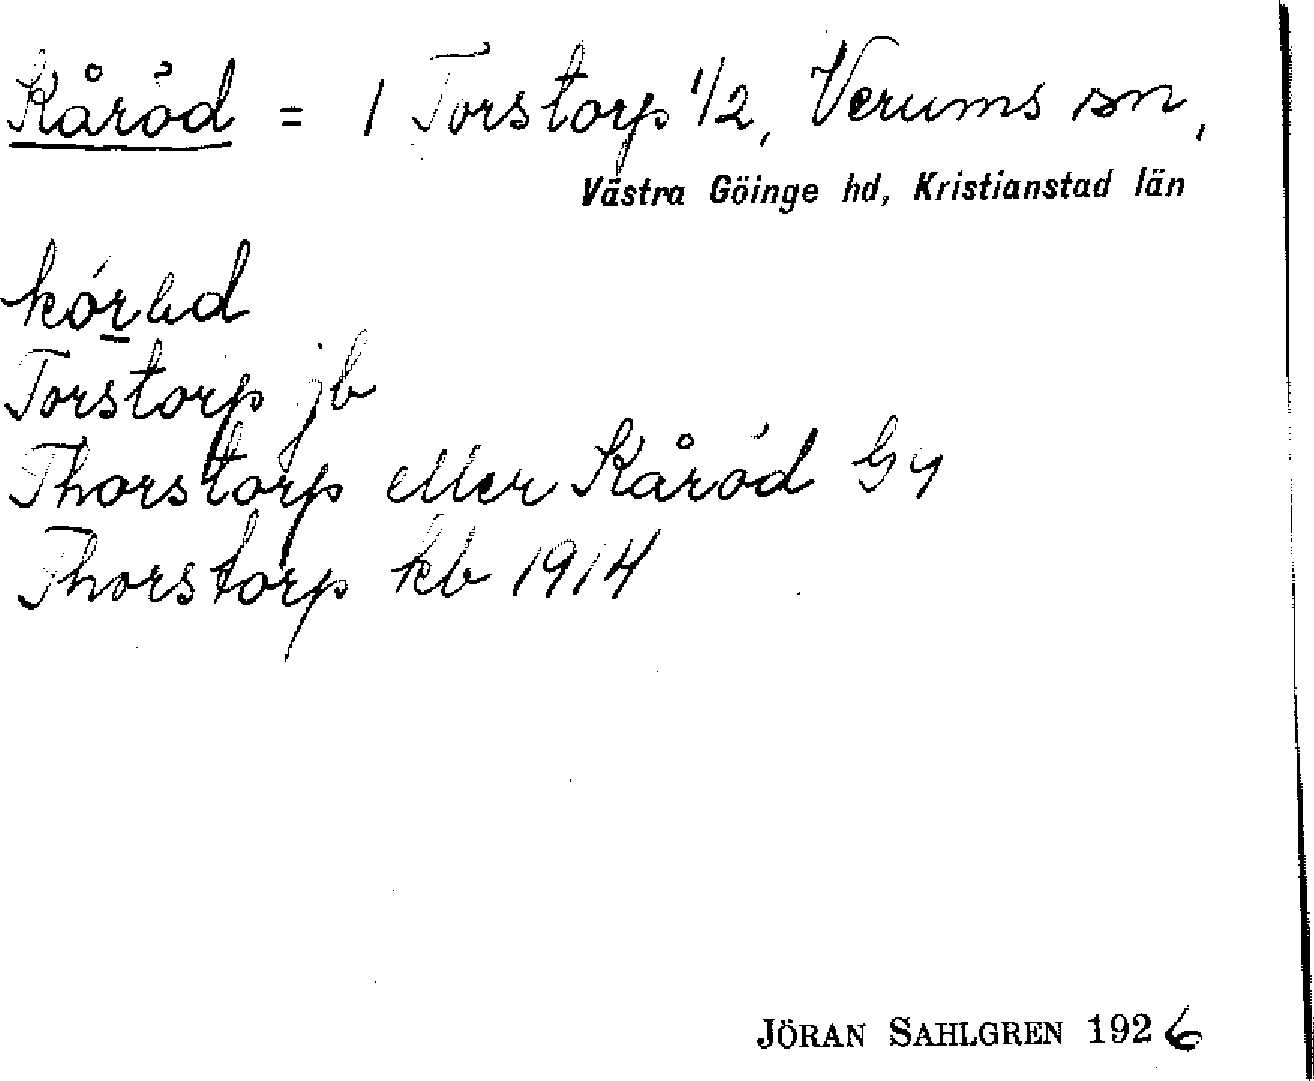 Kåröd = 1 Torstorp 1/2, Verums sn,
Västra Göinge hd, Kristianstad län
Torstorp jb
Thorstorp eller Kåröd Gy
Thorstorp kb 1914
JÖRAN SAHLGREN 1926